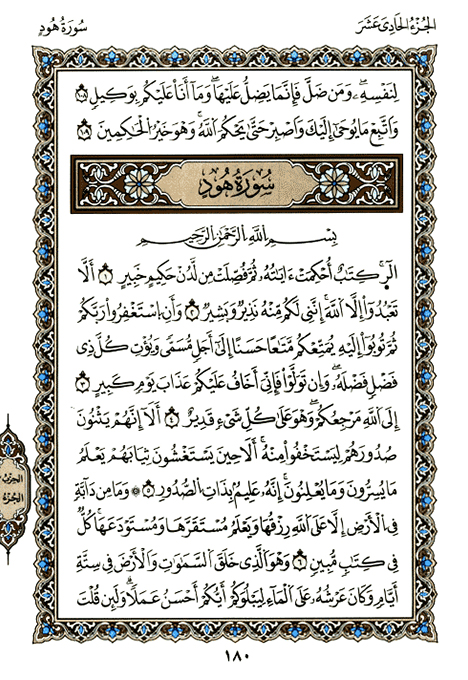 الجُزْءُ الحَادِى عَشَرَ
سُورَةُ هُودٍ
لِنَفْسِهِۦۖ وَمَن ضَلَّ فَإِنَّمَا يَضِلُّ عَلَيْهَاۖ وَمَآ أَنَا۠ عَلَيْكُم بِوَكِيلٍ ١٠٨
وَٱتَّبِعْ مَا يُوحَىٰٓ إِلَيْكَ وَٱصْبِرْ حَتَّىٰ يَحْكُمَ ٱللَّهُۚ وَهُوَ خَيْرُ ٱلْحَٰكِمِينَ ١٠٩
سُورَةُ هُودٍ
بِسْمِ ٱللَّهِ ٱلرَّحْمَٰنِ ٱلرَّحِيمِ
الٓرۚ كِتَٰبٌ أُحْكِمَتْ ءَايَٰتُهُۥ ثُمَّ فُصِّلَتْ مِن لَّدُنْ حَكِيمٍ خَبِيرٍ ١ أَلَّا
تَعْبُدُوٓا۟ إِلَّا ٱللَّهَۚ إِنَّنِى لَكُم مِّنْهُ نَذِيرٌ وَبَشِيرٌ ٢ وَأَنِ ٱسْتَغْفِرُوا۟ رَبَّكُمْ
ثُمَّ تُوبُوٓا۟ إِلَيْهِ يُمَتِّعْكُم مَّتَٰعًا حَسَنًا إِلَىٰٓ أَجَلٍ مُّسَمًّى وَيُؤْتِ كُلَّ ذِى
فَضْلٍ فَضْلَهُۥۖ وَإِن تَوَلَّوْا۟ فَإِنِّىٓ أَخَافُ عَلَيْكُمْ عَذَابَ يَوْمٍ كَبِيرٍ ٣
إِلَى ٱللَّهِ مَرْجِعُكُمْۖ وَهُوَ عَلَىٰ كُلِّ شَىْءٍ قَدِيرٌ ٤ أَلَآ إِنَّهُمْ يَثْنُونَ
صُدُورَهُمْ لِيَسْتَخْفُوا۟ مِنْهُۚ أَلَا حِينَ يَسْتَغْشُونَ ثِيَابَهُمْ يَعْلَمُ
مَا يُسِرُّونَ وَمَا يُعْلِنُونَۚ إِنَّهُۥ عَلِيمٌۢ بِذَاتِ ٱلصُّدُورِ ٥ ۞ وَمَا مِن دَآبَّةٍ
فِى ٱلْأَرْضِ إِلَّا عَلَى ٱللَّهِ رِزْقُهَا وَيَعْلَمُ مُسْتَقَرَّهَا وَمُسْتَوْدَعَهَاۚ كُلٌّ
فِى كِتَٰبٍ مُّبِينٍ ٦ وَهُوَ ٱلَّذِى خَلَقَ ٱلسَّمَٰوَٰتِ وَٱلْأَرْضَ فِى سِتَّةِ
أَيَّامٍ وَكَانَ عَرْشُهُۥ عَلَى ٱلْمَآءِ لِيَبْلُوَكُمْ أَيُّكُمْ أَحْسَنُ عَمَلًاۗ وَلَئِن قُلْتَ
الحزب
الجزء
١٨٠